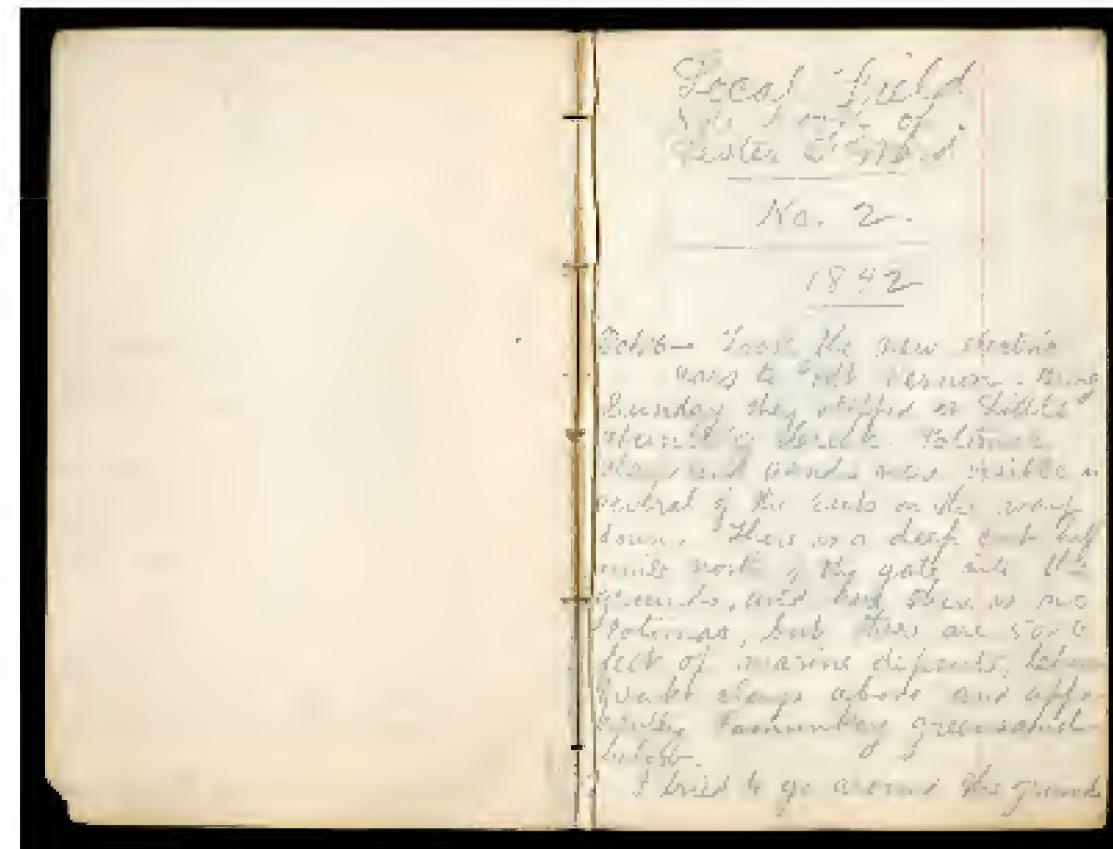 Local Field
of
Lester F. Ward
No. 2
1892
Took the new electric
cars to Mt Vernon. Being
Sunday they stopped at Little
Hunting Creek. Potomac
clays and sands were visible in
several of the cuts on the way
down. There is a deep cut half
mile north of the gate into the
grounds, and here there is no
Potomac, but there are 50
feet of marine deposits,
clays above and
Pamunkey greensand
below.
I tried to go around the grounds